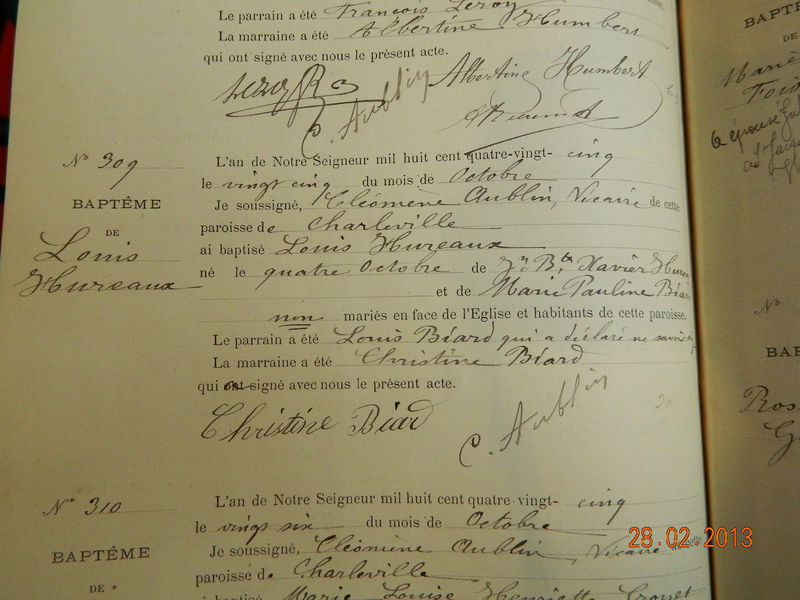 Le parrain a été François Leroy
La marraine a été Albertine Humbert
qui ont signé avec nous le présent acte.
Leroy
Albertine Humbert
C. Aublin
N° 309
BAPTÊME
DE
Louis
Hureaux
L'an de Notre Seigneur mil huit cent quatre-vingt- cinq
le vingt cinq du mois de Octobre
Je soussigné, Cléomène Aublin, Vicaire de cette
paroisse de Charleville
ai baptisé Louis Hureaux
né le quatre Octobre de Jn Bte Xavier
et de Marie Pauline Biard
non mariés en face de l'Eglise et habitants de cette paroisse.
Le parrain a été Louis Biard qui a déclaré ne savoir
La marraine a été Christine Biard
qui ont signé avec nous le présent acte.
Christine Biard
C. Aublin
N° 310
BAPTÊME
DE
L'an de Notre Seigneur mil huit cent quatre-vingt- cinq
le vingt six du mois de Octobre
Je soussigné, Cléomène Aublin, Vicaire
paroisse de Charleville
ai baptisé Marie Louise Henriette
BAPTÊ
DE
Marie
a épousé
N°
BA
Ros
28.02.2013